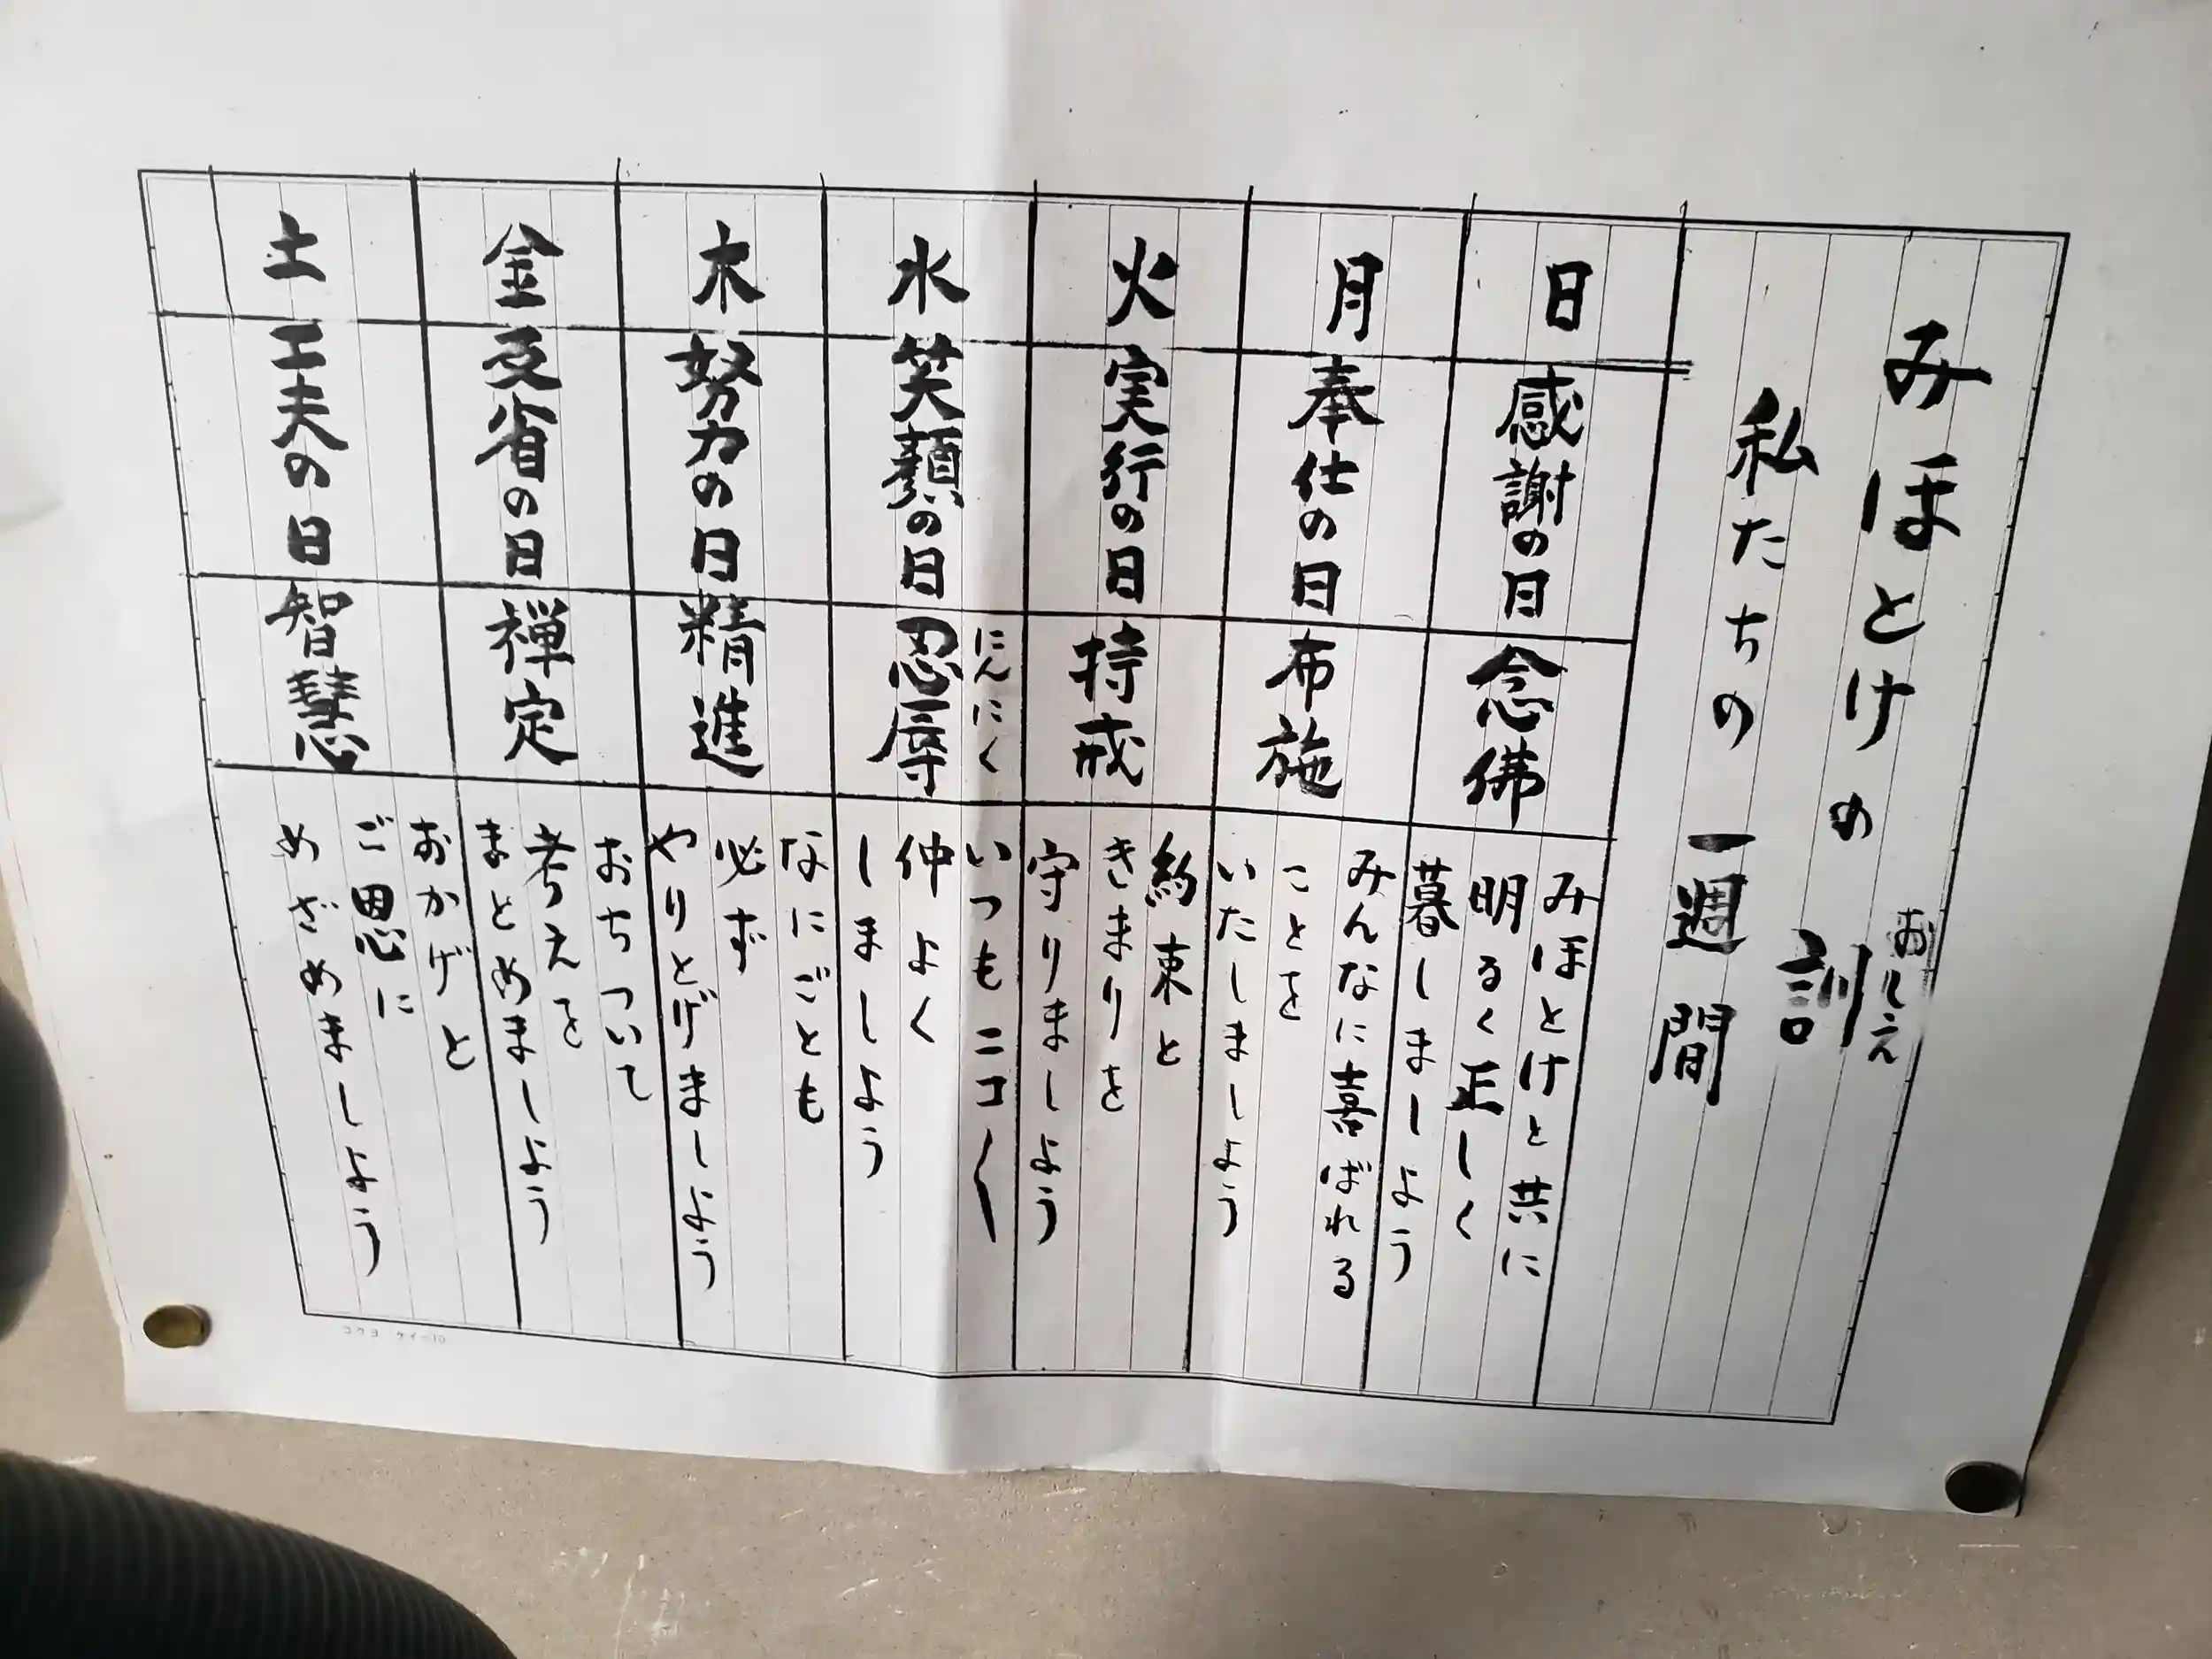 みほとけの訓
おしえ
私たちの一週間
日
感謝の日
念佛
みほとけと共に
明るく正しく
暮しましよう
月
奉仕の日
布施
みんなに喜ばれる
ことを
いたしましよう
火
実行の日
持戒
約束と
きまりを
守りましよう
水
笑顔の日
忍辱
にんにく
いつもニコ〱
仲よく
しましよう
木
努力の日
精進
なにごとも
必ず
やりとげましよう
金
反省の日
禅定
おちついて
考えを
まとめましよう
土
工夫の日
智慧
おかげと
ご恩に
めざめましよう
コクヨ ケイ-10